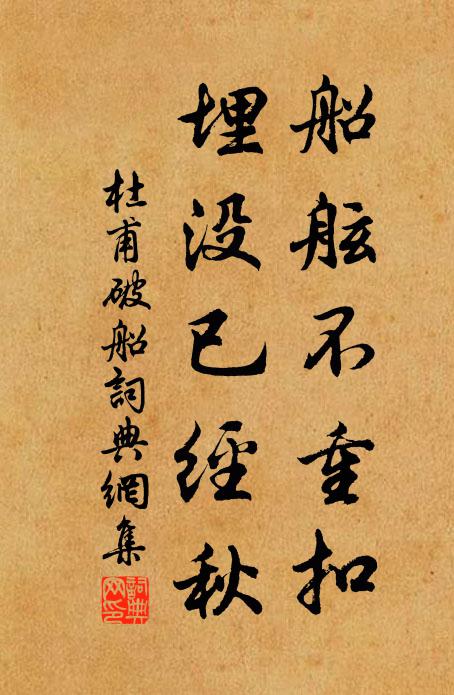 船舷不重扣
埋没已經秋
杜甫破船詞典網集
詞典網印